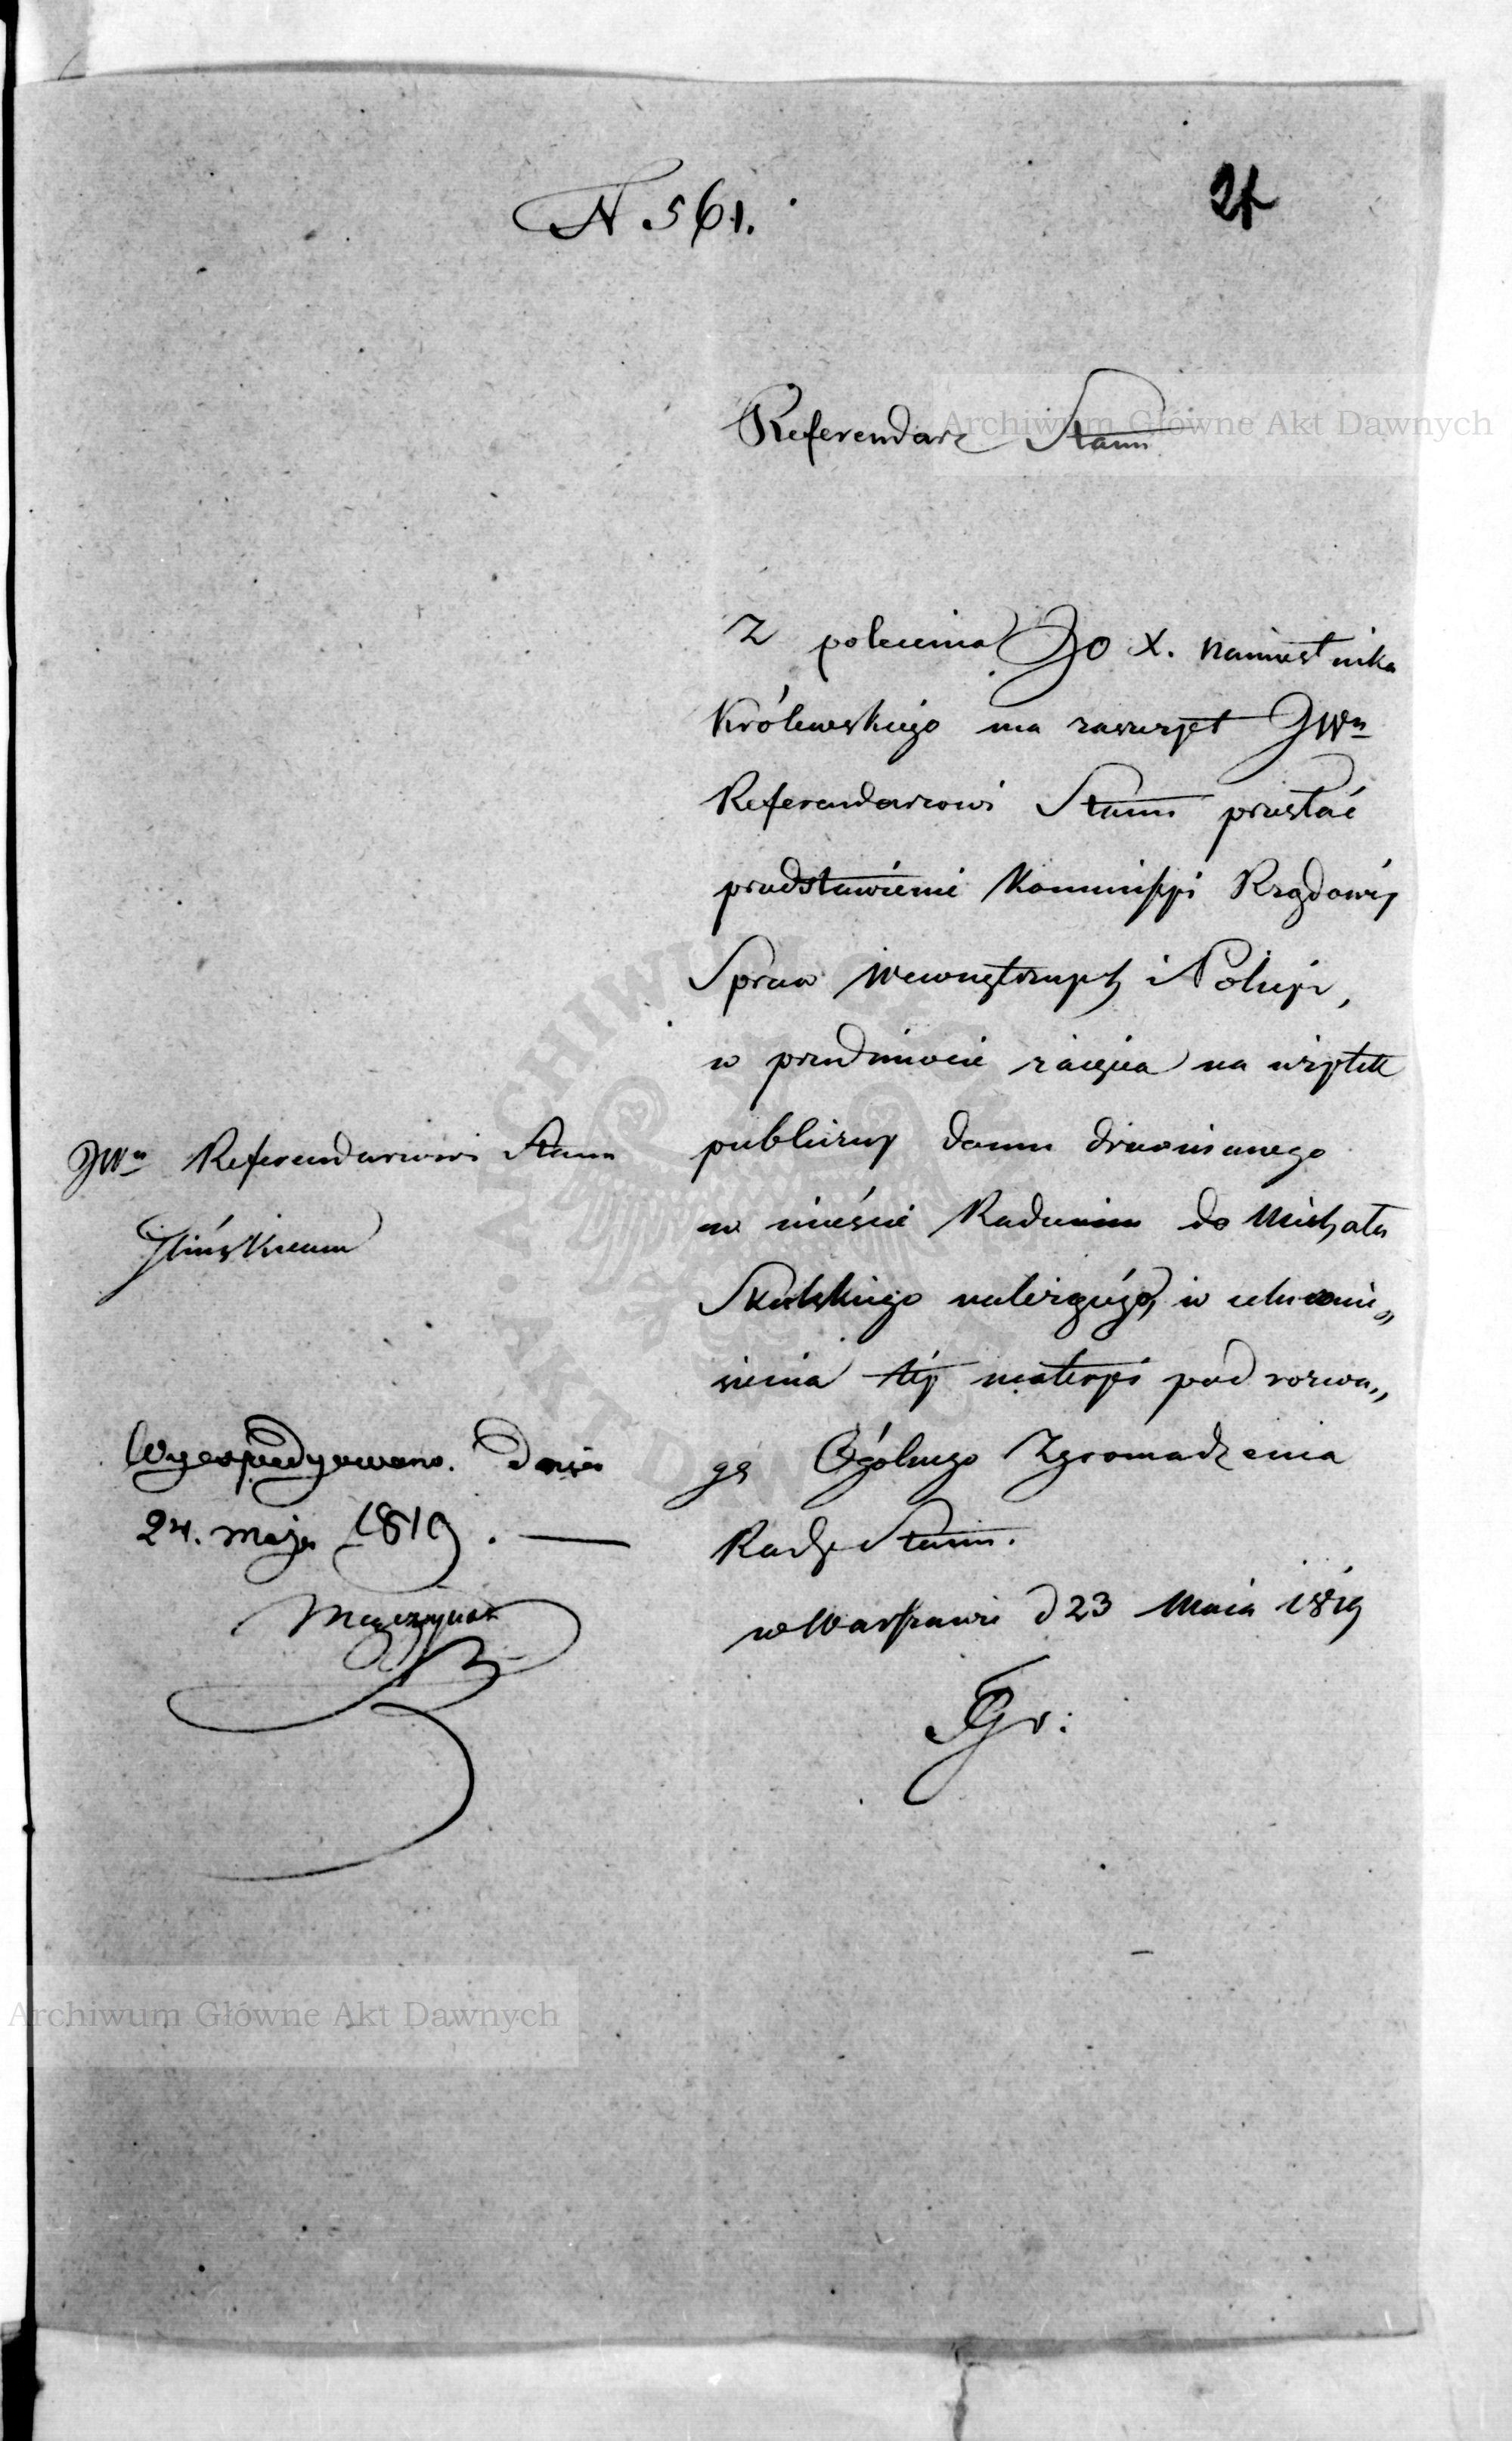 N 561.
21
Referendarz Stanu
Z polecenia JO X. Namiestnika
Królewskiego ma zaszczyt JWu
Referendarzowi Stanu przesłać
przedstawienie Kommissyi Rządowéy
Spraw Wewnętrznych i Policyi,
w przedmiocie zaięcia na użytek
publiczny domu drewnianego
w mieście Radzimin do Michała
Skulskiego należącégo, w celu wnie„
sienia téy materyi pod rozwa„
gę Ogólnego Zgromadzenia
Rady Stanu.
w Warszawie d 23 Maia 1819
JWu Referendarzowi Stanu
Wyexpedyowano. Dnia
24. Maja 1819. —
Archiwum Główne Akt Dawnych
Archiwum Główne Akt Dawnych